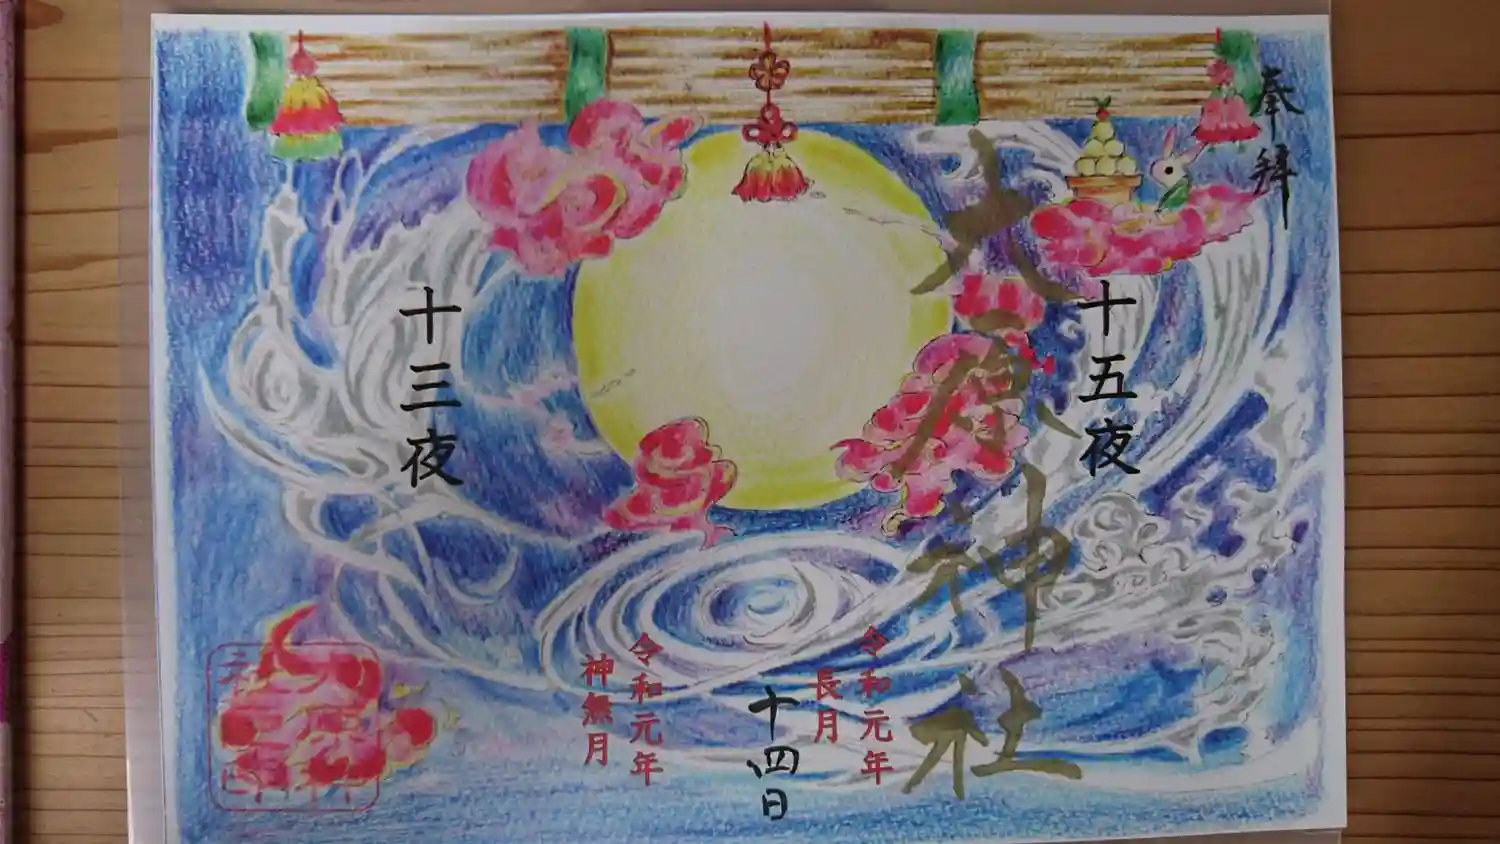 奉拝
十五夜
大原神社
令和元年
長月
十四日
令和元年
神無月
十三夜